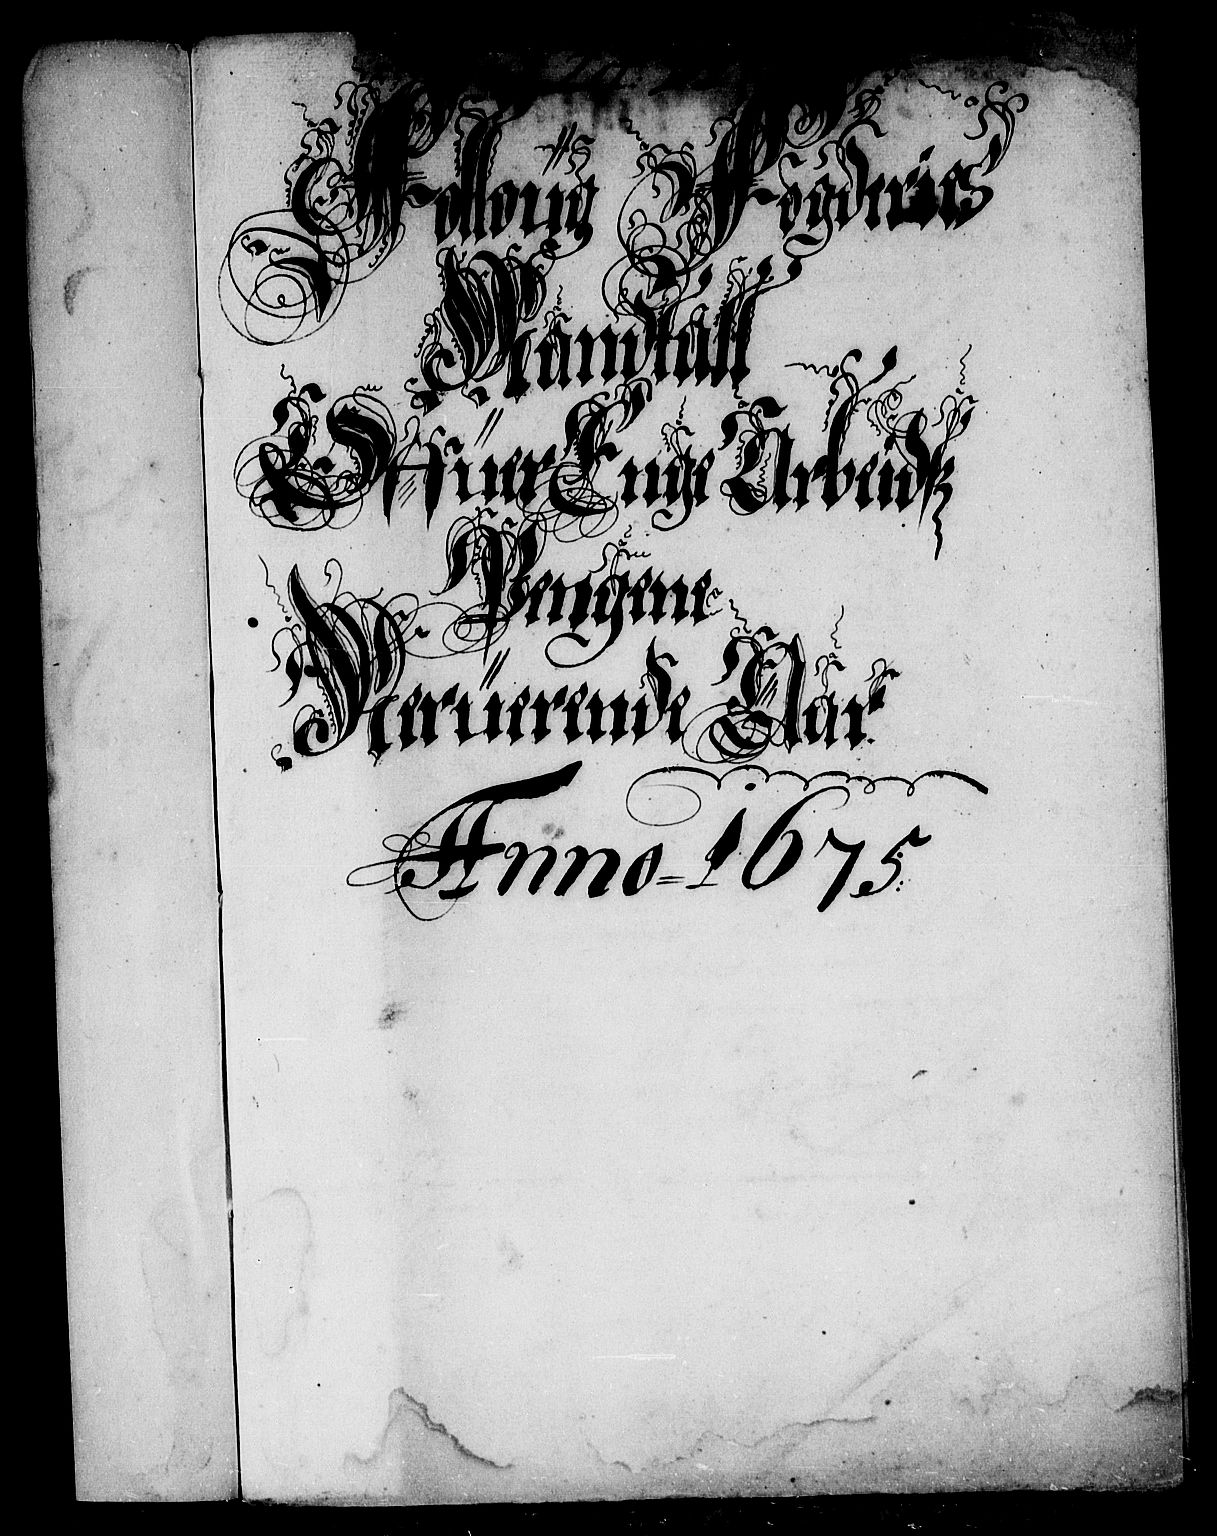 Folloug Fögderies
Mandtall
Offuer Enge Arbeidz
Pengene
Neruerende Aar
Anno = 1675